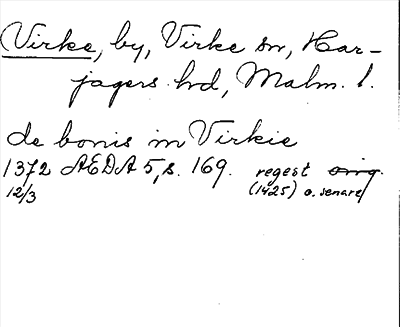 Virke, by, Virke sn, Har-
jagers hd, Malm. l.
de bonis in Virkie
1372 AEDA 5, s. 169. regest orig.
12/3 (1425) o. senare